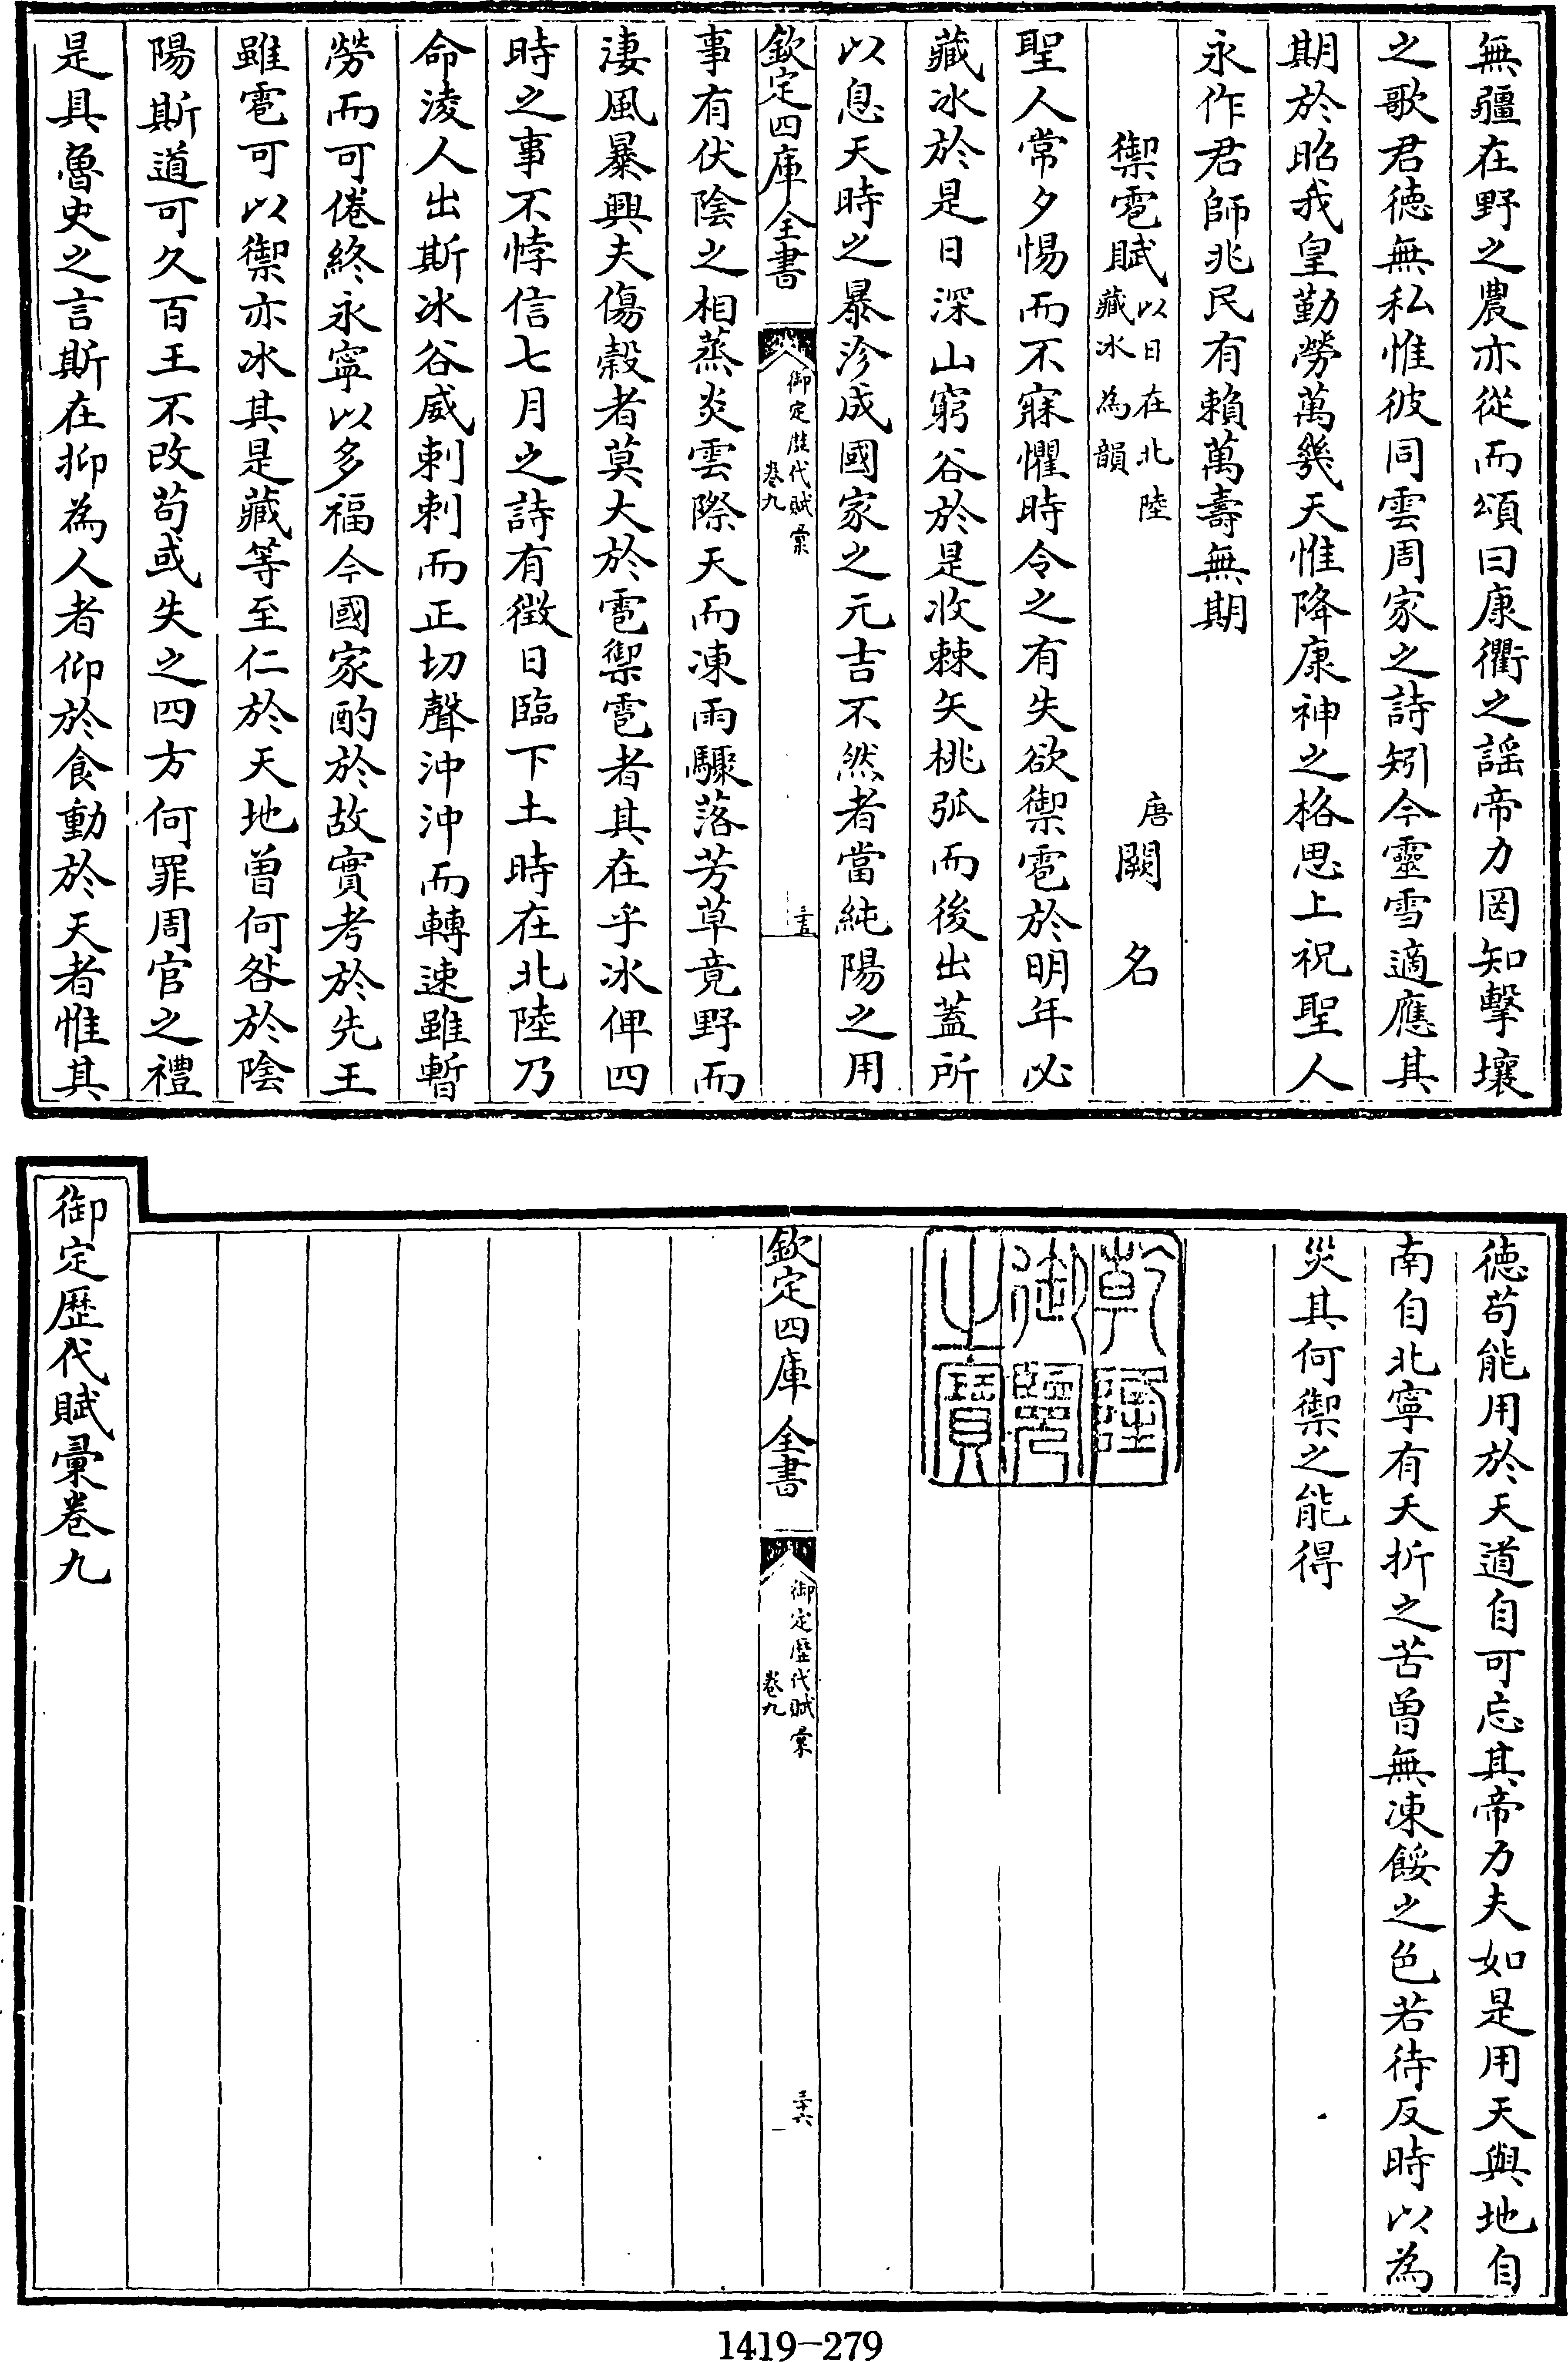 無疆在野之農亦從而頌曰康衢之謡帝力罔知擊壤
之歌君徳無私惟彼同雲周家之詩矧今靈雪適應其
期於昭我皇勤勞萬幾天惟降康神之格思上祝聖人
永作君師兆民有賴萬壽無期
禦雹賦以日在北陸藏冰為韻 唐闕名
聖人常夕惕而不寐懼時令之有失欲禦雹於明年必
藏冰於是日深山窮谷於是收棘矢桃弧而後出蓋所
以息天時之暴沴成國家之元吉不然者當純陽之用
欽定四庫全書 御定歴代賦彙卷九 三十五
事有伏陰之相蒸炎雲際天而凍雨驟落芳草竟野而
淒風暴興夫傷穀者莫大於雹禦雹者其在乎冰俾四
時之事不悖信七月之詩有徴日臨下土時在北陸乃
命淩人出斯冰谷威刺刺而正切聲沖沖而轉速雖暫
勞而可倦終永寧以多福今國家酌於故實考於先王
雖雹可以禦亦冰其是藏等至仁於天地曾何咎於陰
陽斯道可久百王不改苟或失之四方何罪周官之禮
是具魯史之言斯在抑為人者仰於食動於天者惟其
徳苟能用於天道自可忘其帝力夫如是用天與地自
南自北寧有夭折之苦曾無凍餒之色若待反時以為
災其何禦之能得
乾隆御覽之寶
欽定四庫全書 御定歴代賦彙卷九 三十六
御定歴代賦彙卷九
1419-279